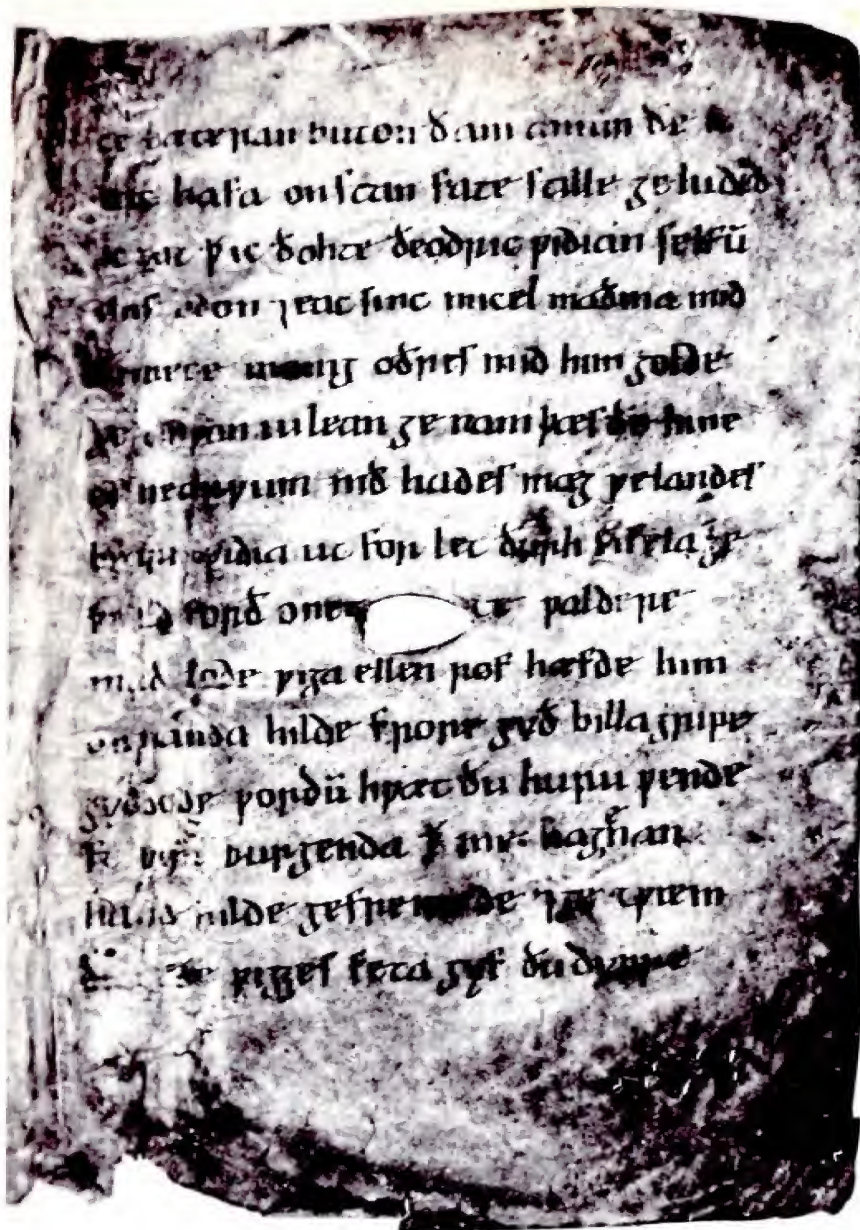 ce bæteran buton ðam anum ðe
hafa on stan fate stille ge hided
ic ƿat þ ic ðohte ðeodric ƿidian selfū
on sendon ⁊ eac sinc micel maðma mid
mece monig oðres mid him golde
ge girƿan iu lean ge nam þæs ðe hine
of nearƿum nið hades mæg ƿelandes
bearn ƿidia ut for let ðurh fifela ge
forð onette ƿaldere
mað lode ƿiga ellen rof hæfde him
on handa hilde frore guð billa gripe
gyddode ƿordū hƿæt ðu huru ƿende
burgenda þ me hagenan
hand hilde gefremede ⁊ ge tƿæm
ƿigges feta gyf ðu dyrre